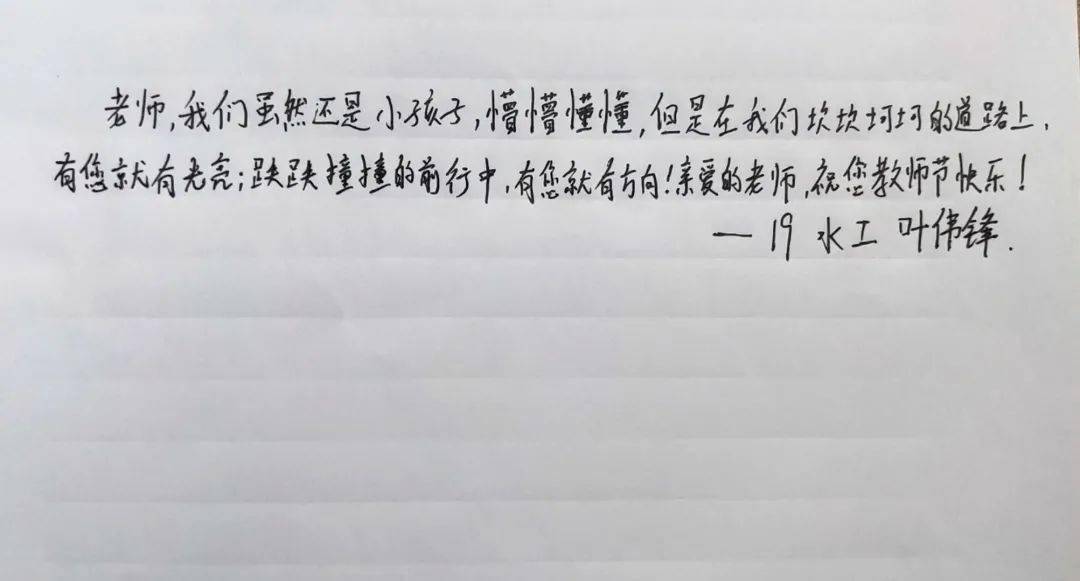 老师,我们虽然还是小孩子,懵懵懂懂,但是在我们坎坎坷坷的道路上,
有您就有光亮;跌跌撞撞的前行中,有您就有方向!亲爱的老师,祝您教师节快乐!
— 19 水工 叶伟锋.